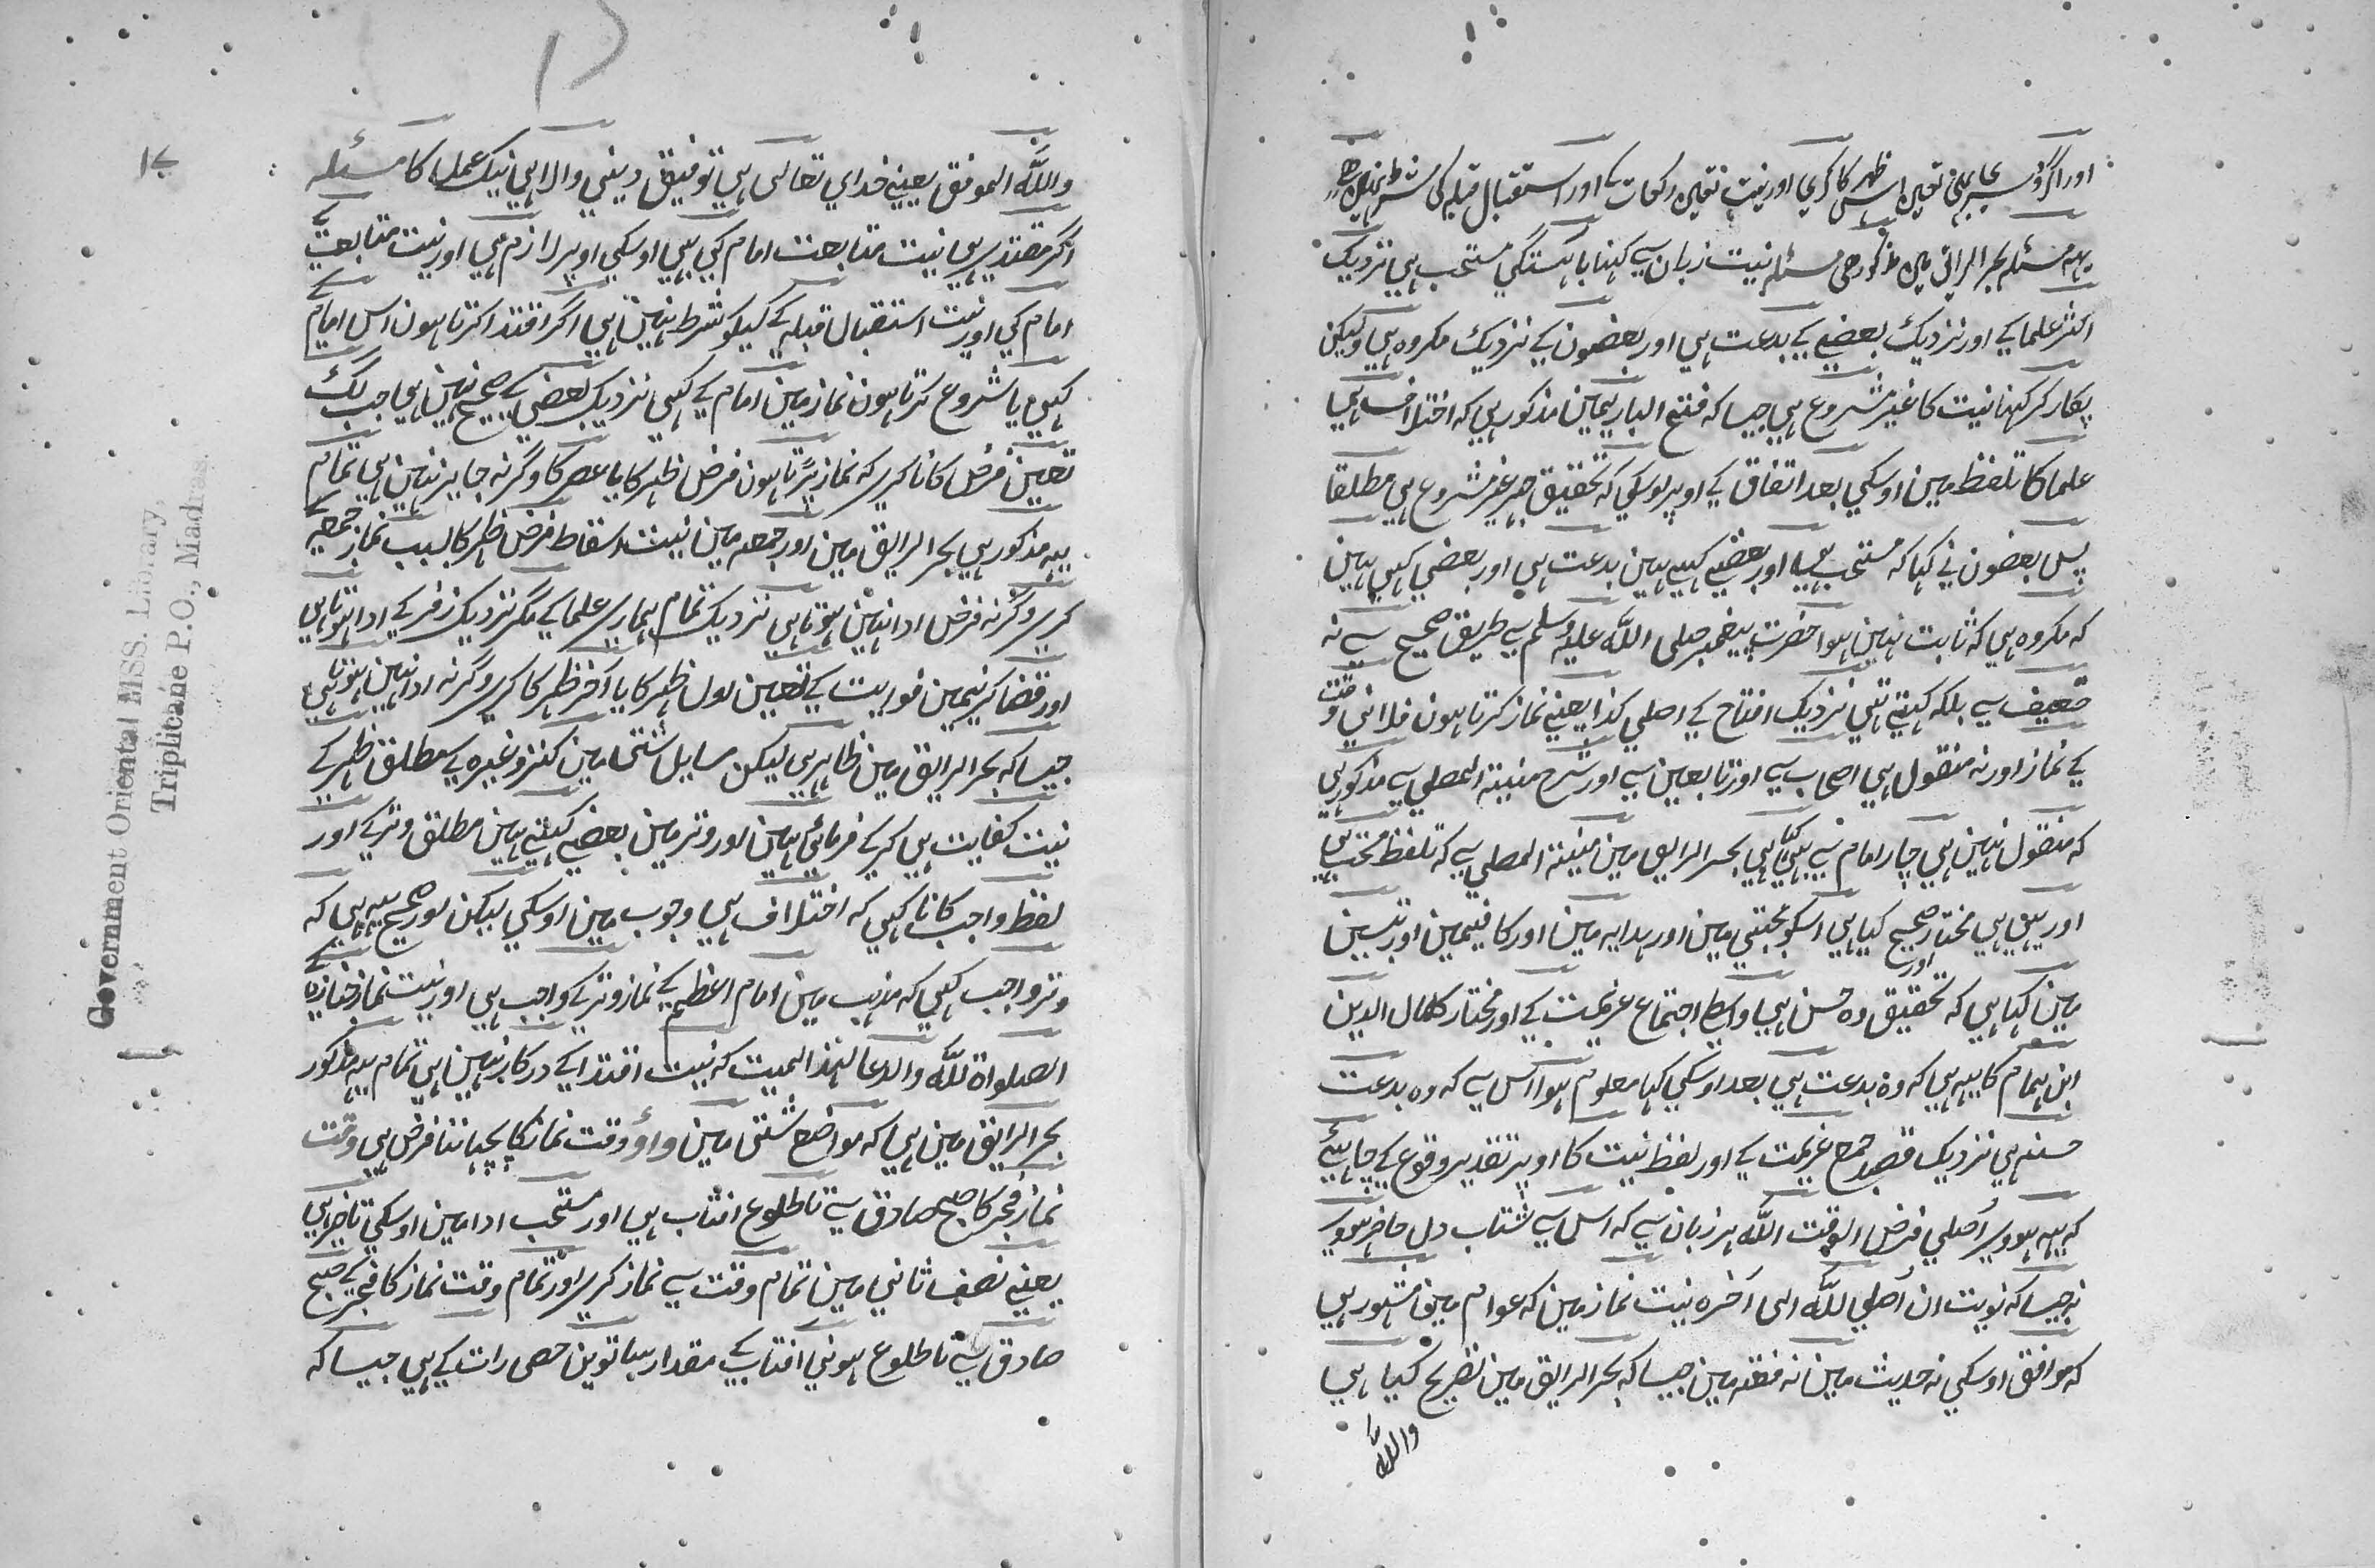 اور اگر تعین اس ظہر کا کری اور نیت تعین رکعات کے اور استقبال قبلہ کی شرط نہین ہی
یہہ مسئلہ بحر الرائق مین مذکور ہی مسئلہ نیت زبان سے کہنا باہستگی مستحب ہی نزدیک
اکثر علما کے اور نزدیک بعضے کے بدعت ہی اور بعضون کے نزدیک مکروہ ہی ولیکن
پکار کر کہنا نیت کا غیر مشروع ہی جیسا کہ فتح الباریمین مذکور ہی کہ اختلاف ہی
علما کا تلفظ مین اوسکی بعد اتفاق کے اوپر اوسکی کہ تحقیق جہر غیر مشروع ہی مطلقا
پس بعضون نی کہا کہ مستحب ہی اور بعضے کہی ہین بدعت ہی اور بعضی کہی ہین
کہ مکروہ ہی کہ ثابت نہین ہوا حضرت پیغمبر صلی اللہ علیہ وسلم سے طریق صحیح سے نہ
ضعیف سے بلکہ کہتے تہی نزدیک افتتاح کے اصلی کذا یعنے نماز کرتا ہون فلانی وقت
کے نماز اور نہ منقول ہی اصحاب سے اور تابعین سے اور شرح منیتہ المصلی سے مذکور ہی
کہ منقول نہین ہی چار امام سے بہی کہا ہی بحر الرایق مین منیتہ المصلی سے کہ تلفظ مستحب ہی
اور یہی ہی مختار صحیح کیا ہی اسکو مجتبی مین اور ہدایہ مین اور کافیمین اور تبیین
مین کہا ہی کہ تحقیق وہ حسن ہی واسطے اجتماع عزیمت کے اور مختار کمال الدین
ابن ہمام کا یہہ ہی کہ وہ بدعت ہی بعد اوسکی کہا معلوم ہوا اس سے کہ وہ بدعت
حسنہ ہی نزدیک قصد جمع عزیمت کے اور لفظ نیت کا اوپر تقدیر وقوع کے چاہیئے
کہ یہہ ہووی اُصلی فرض الوقت اللّٰہ ہر زبان سے کہ اس سے شتاب دل حاضر ہووی
نہ جیسا کہ نویت ان اُصلی للّٰہ الی آخرہ نیت نماز مین کہ عوام مین مشہور ہی
کہ موافق اوسکی نہ حدیث مین نہ فقہ مین جیسا کہ بحر الرایق مین تصریح کیا ہی
واللّٰہ
۱۷
واللّٰہ الموفق یعنے خدای تعالی ہی توفیق دینی والا ہی نیک عمل کا مسئلہ
اگر مقتدی ہی نیت متابعت امام کی بہی اوسکی اوپر لازم ہی اور نیت متابعت کے
امام کی اور نیت استقبال قبلہ کے کیکو شرط نہین ہی اگر اقتدا کرتا ہون اس امام کے
کہی یا شروع کرتا ہون نماز مین امام کے کہی نزدیک بعضی کے صحیح نہین ہی جب لگ
تعین فرض کا نا کری کہ نماز پڑتا ہون فرض ظہر کا یا عصر کا وگرنہ جایز نہین ہی تمام
یہہ مذکور ہی بحر الرایق مین اور جمعہ مین نیت اسقاط فرض ظہر کا بسبب نماز جمعہ کے
کری وگرنہ فرض ادا نہین ہوتا ہی نزدیک تمام ہماری علما کے مگر نزدیک زفر کے ادا ہوتا ہی
اور قضا کرنیمین فوایت کے تعین اول ظہر کا یا آخر ظہر کا کری وگرنہ ادا نہین ہوتا ہی
جیسا کہ بحر الرایق مین ظاہر ہی لیکن مسایل شتی مین کنز وغیرہ کے مطلق ظہر کے
نیت کفایت ہی کر کے فرمائی ہین اور وتر مین بعضے کہتے ہین مطلق وتر کے اور
لفظ واجب کا نا کہی کہ اختلاف ہی وجوب مین اوسکی لیکن اور صحیح یہہ ہی کہ
وتر واجب کہی کہ مذہب مین امام اعظم کے نماز وتر کے واجب ہی اور نیت نماز جنازہ کے
الصلواۃ للّٰہ والدعا لہذا المیت کہ نیت اقتدا کے درکار نہین ہی تمام یہہ مذکور
بحر الرایق مین ہی کہ مواضع شتی مین واؤ وقت نماز کا پہچاننا فرض ہی وقت
نماز فجر کا صبح صادق سے تا طلوع افتاب ہی اور مستحب ادا مین اوسکی تاخیر ہی
یعنے نصف ثانی مین تمام وقت سے نماز کری اور تمام وقت نماز کا فجر کے صبح
صادق سے تا طلوع ہونی افتاب کے مقدار ساتوین حصی رات کے ہی جیسا کہ
Government Oriental MSS. Library,
Triplicane P.O., Madras.